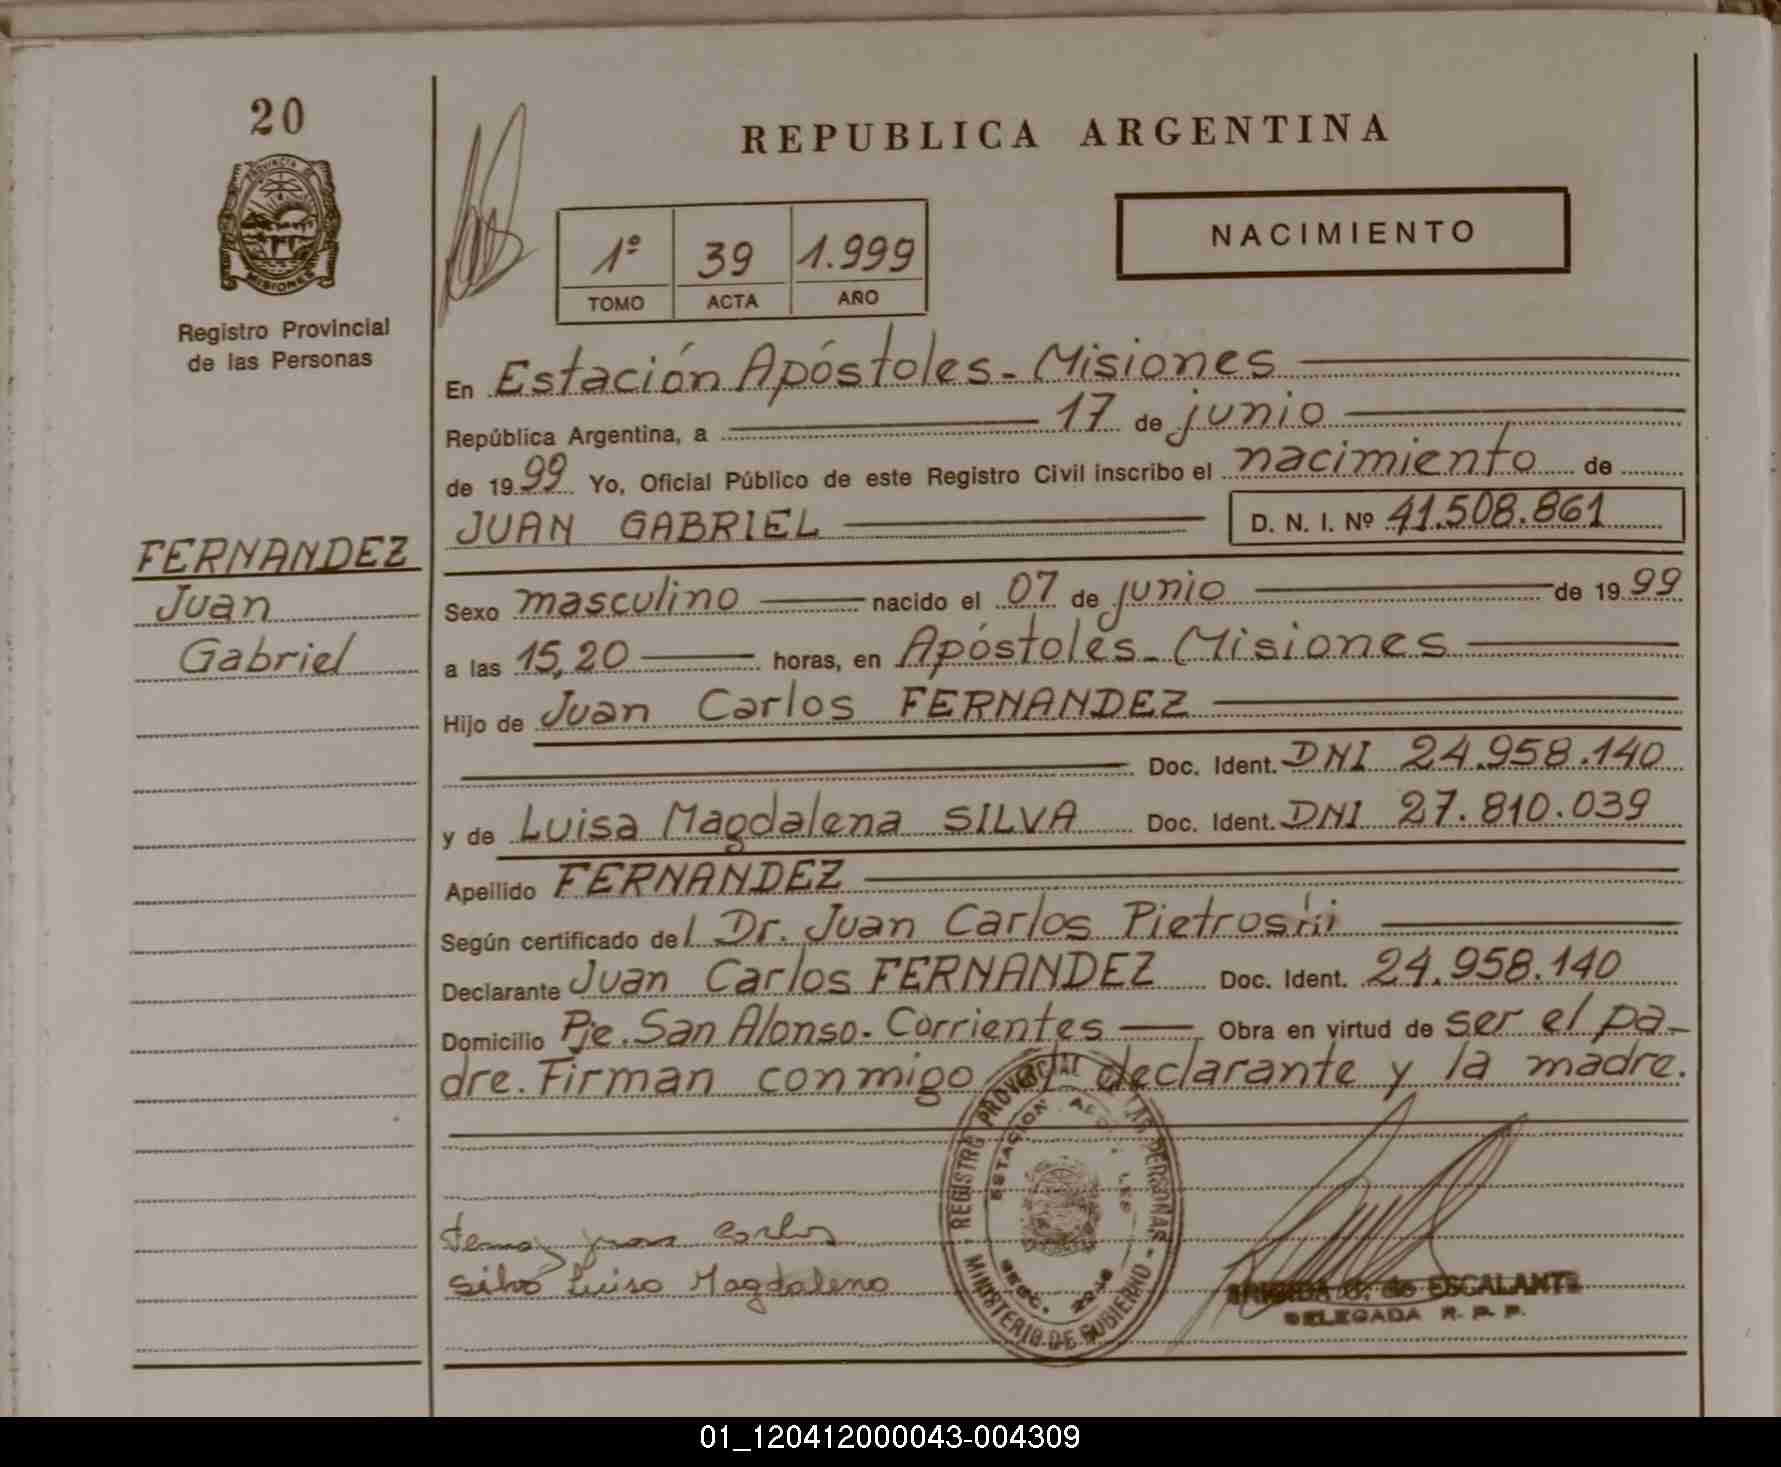 20
PROVINCIA DE
MISIONES
Registro Provincial
de las Personas
FERNANDEZ
Juan
Gabriel
REPUBLICA ARGENTINA
1º 39 1.999
TOMO ACTA AÑO
NACIMIENTO
En Estación Apóstoles - Misiones
República Argentina, a 17 de junio
de 1999 Yo, Oficial Público de este Registro Civil inscribo el nacimiento de
JUAN GABRIEL D. N. I. Nº 41.508.861
Sexo masculino nacido el 07 de junio de 1999
a las 15,20 horas, en Apóstoles - Misiones
Hijo de Juan Carlos FERNANDEZ
Doc. Ident. DNI 24.958.140
y de Luisa Magdalena SILVA Doc. Ident. DNI 27.810.039
Apellido FERNANDEZ
Según certificado del Dr. Juan Carlos Pietroski
Declarante Juan Carlos FERNANDEZ Doc. Ident. 24.958.140
Domicilio Pje. San Alonso - Corrientes Obra en virtud de ser el pa-
dre. Firman conmigo el declarante y la madre.
REGISTRO PROVINCIAL DE LAS PERSONAS - MINISTERIO DE GOBIERNO -
ESTACION
SECC.
juan Carlos
Silva Luisa Magdalena
de ESCALANTE
DELEGADA R. P. P.
01_120412000043-004309